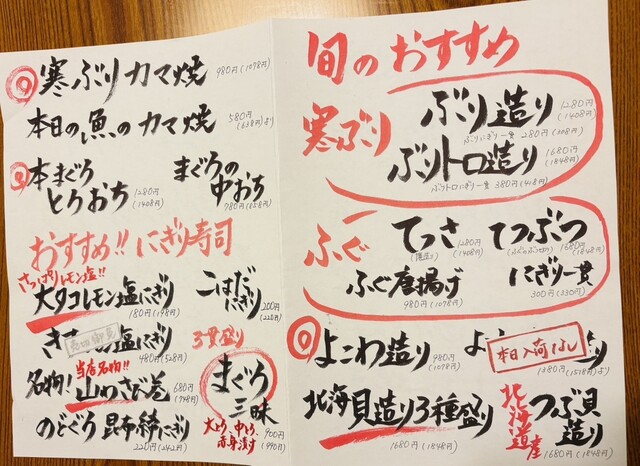 寒ぶりカマ焼 980円(1078円)
本日の魚のカマ焼 580円(638円)より
本まぐろとりおち 1280円(1408円)
まぐろの中おち 780円(858円)
おすすめ!!にぎり寿司
さっぱりレモン塩!!
大タコレモン塩にぎり 180円(198円)
こはだにぎり 200円(220円)
売切御免
塩にぎり 480円(528円)
当店名物!!
名物!山わさび巻 680円(748円)
のどぐろ昆布締にぎり 220円(242円)
3貫盛り
まぐろ三昧
大とろ、中とろ、赤身漬け 900円(990円)
旬のおすすめ
寒ぶり
ぶり造り 1280円(1408円)
ぶりにぎり一貫 280円(308円)
ぶりトロ造り 1680円(1848円)
ぶりトロにぎり一貫 380円(418円)
ふぐ
てっさ 1280円(1408円)
(薄造り)
てつぶつ 1680円(1848円)
(ふぐのぶつ切り)
ふぐ唐揚げ 980円(1078円)
にぎり一貫 300円(330円)
よこわ造り 980円(1078円)
本日入荷なし
1380円(1518円)より
北海貝造り3種盛り 1680円(1848円)
北海道産
つぶ貝造り 1680円(1848円)